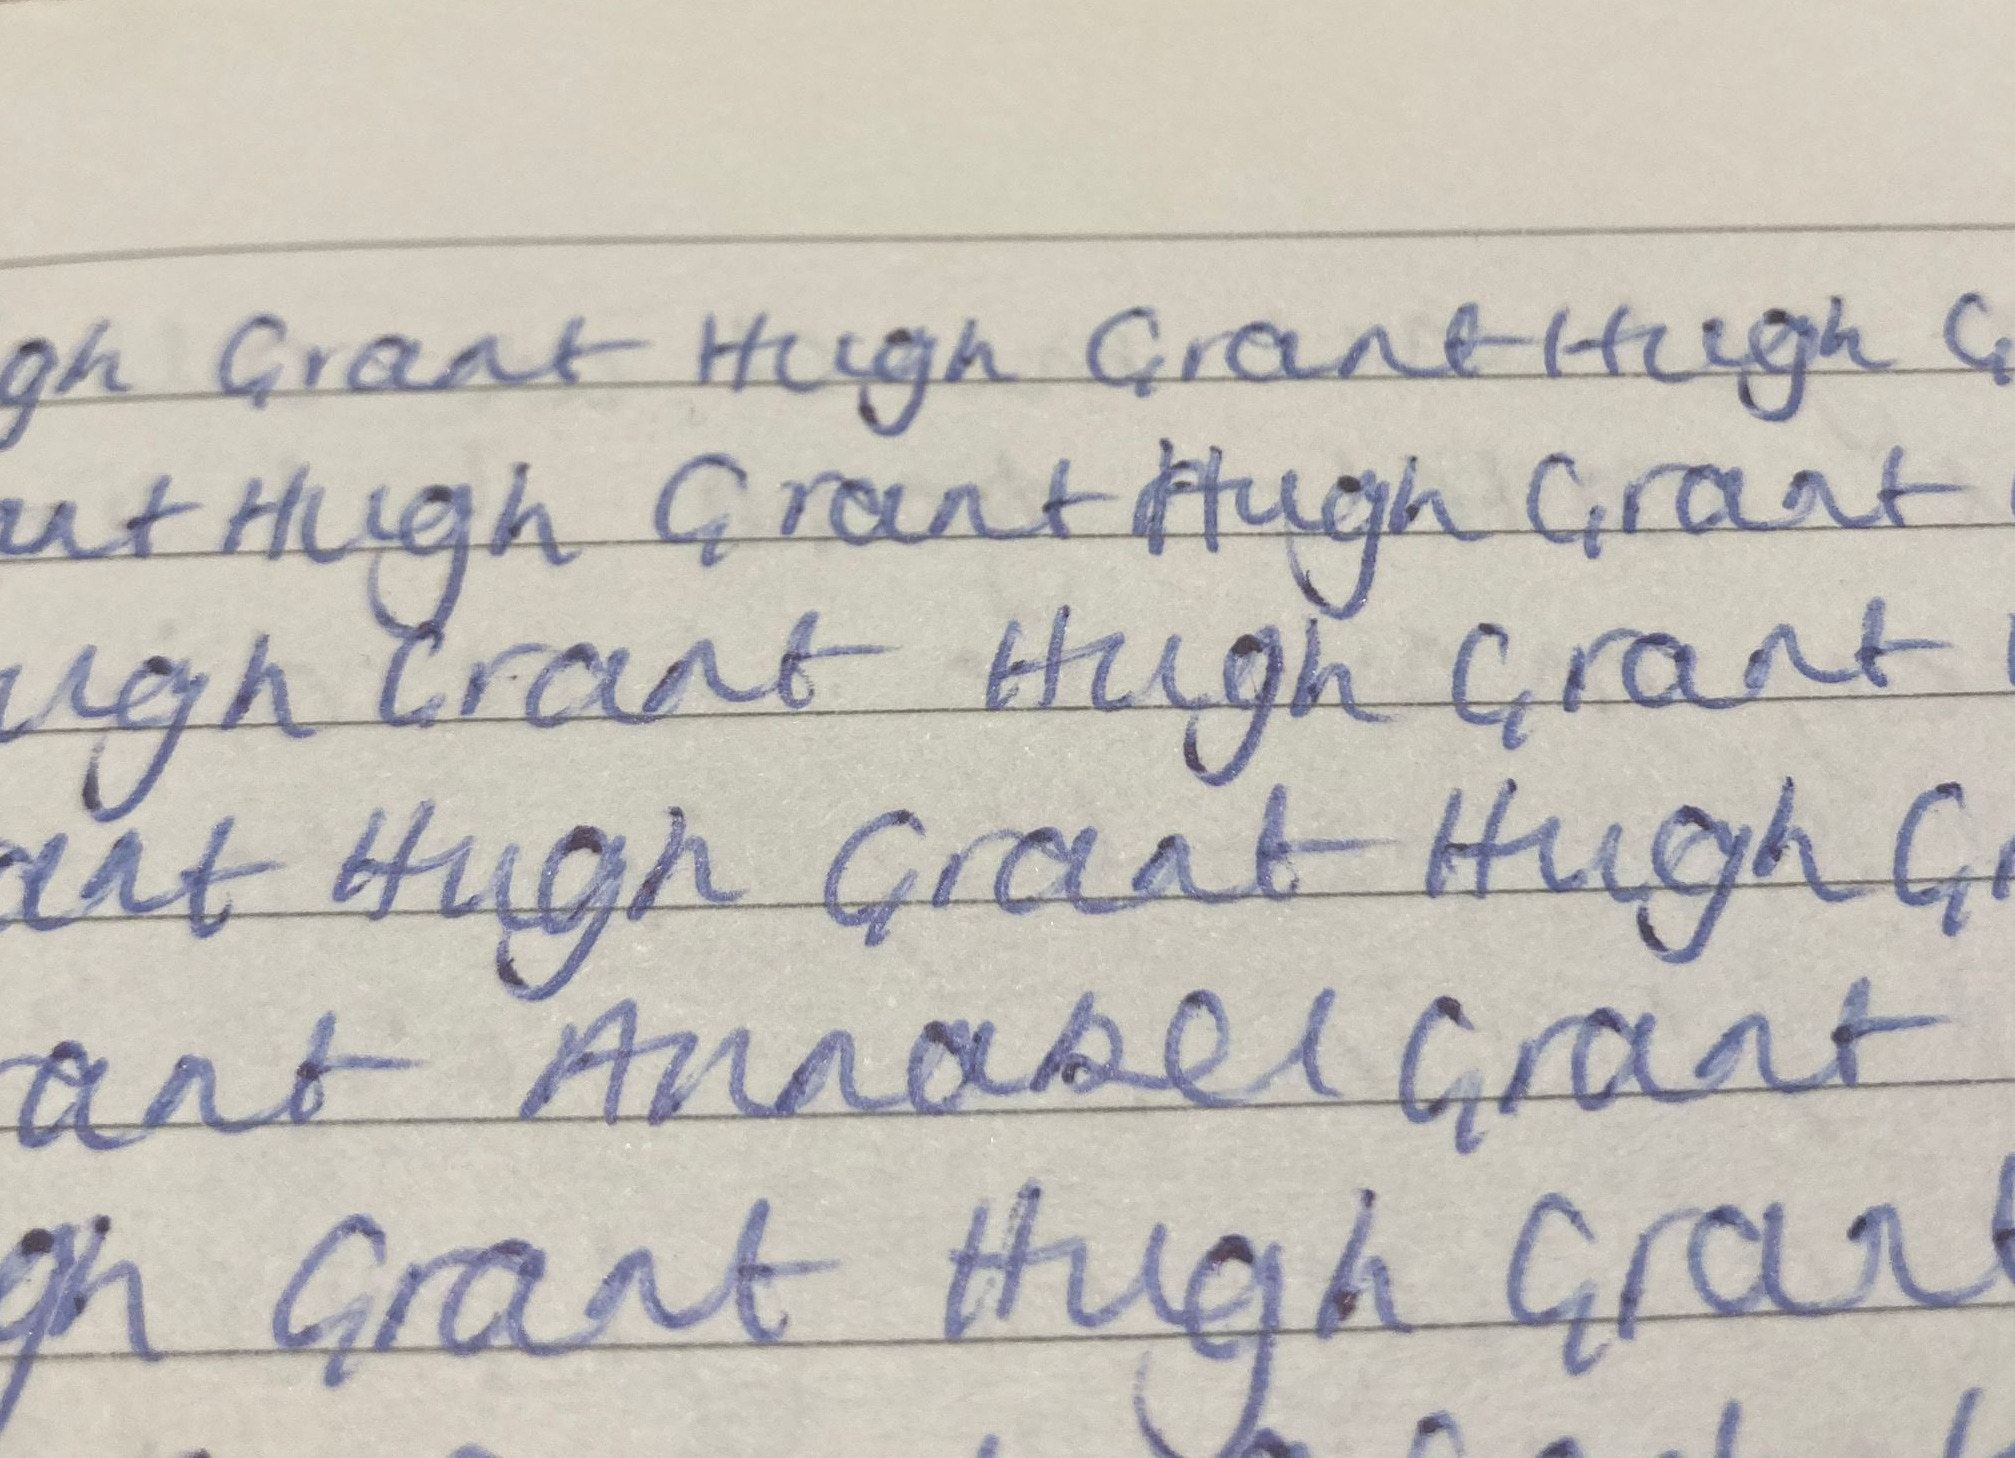 gh Grant Hugh Grant Hugh G
ant Hugh Grant Hugh Grant
ugh Grant Hugh Grant
ant Hugh Grant Hugh Gr
rant Annabel Grant
gh Grant Hugh Grant